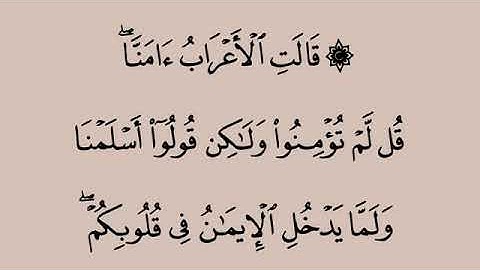 ۞ قَالَتِ ٱلۡأَعۡرَابُ ءَامَنَّاۖ
قُل لَّمۡ تُؤۡمِنُواْ وَلَٰكِن قُولُوٓاْ أَسۡلَمۡنَا
وَلَمَّا يَدۡخُلِ ٱلۡإِيمَٰنُ فِي قُلُوبِكُمۡۖ